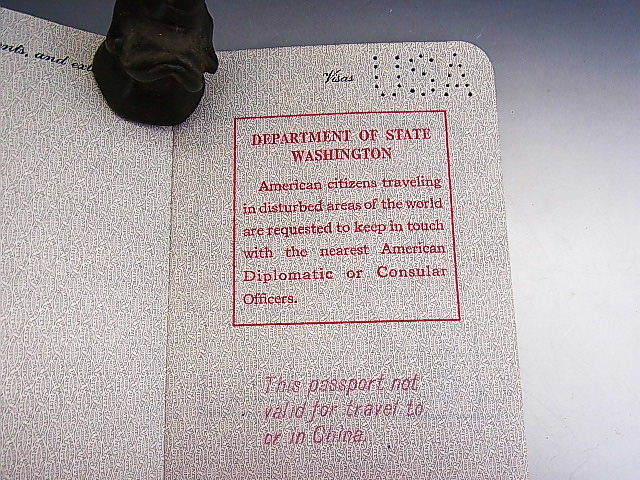 nts, and ex
Visas
USA
DEPARTMENT OF STATE
WASHINGTON
American citizens traveling
in disturbed areas of the world
are requested to keep in touch
with the nearest American
Diplomatic or Consular
Officers.
This passport not
valid for travel to
or in China.